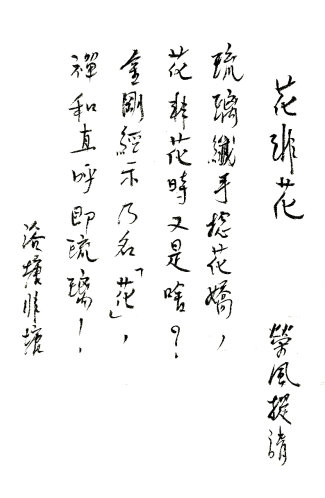 花非花
榮風擬請
琉璃纖手捻花嬌，
花非花時又是啥？
金剛經示乃名「花」，
禪和直呼即琉璃！
浴塘非塘